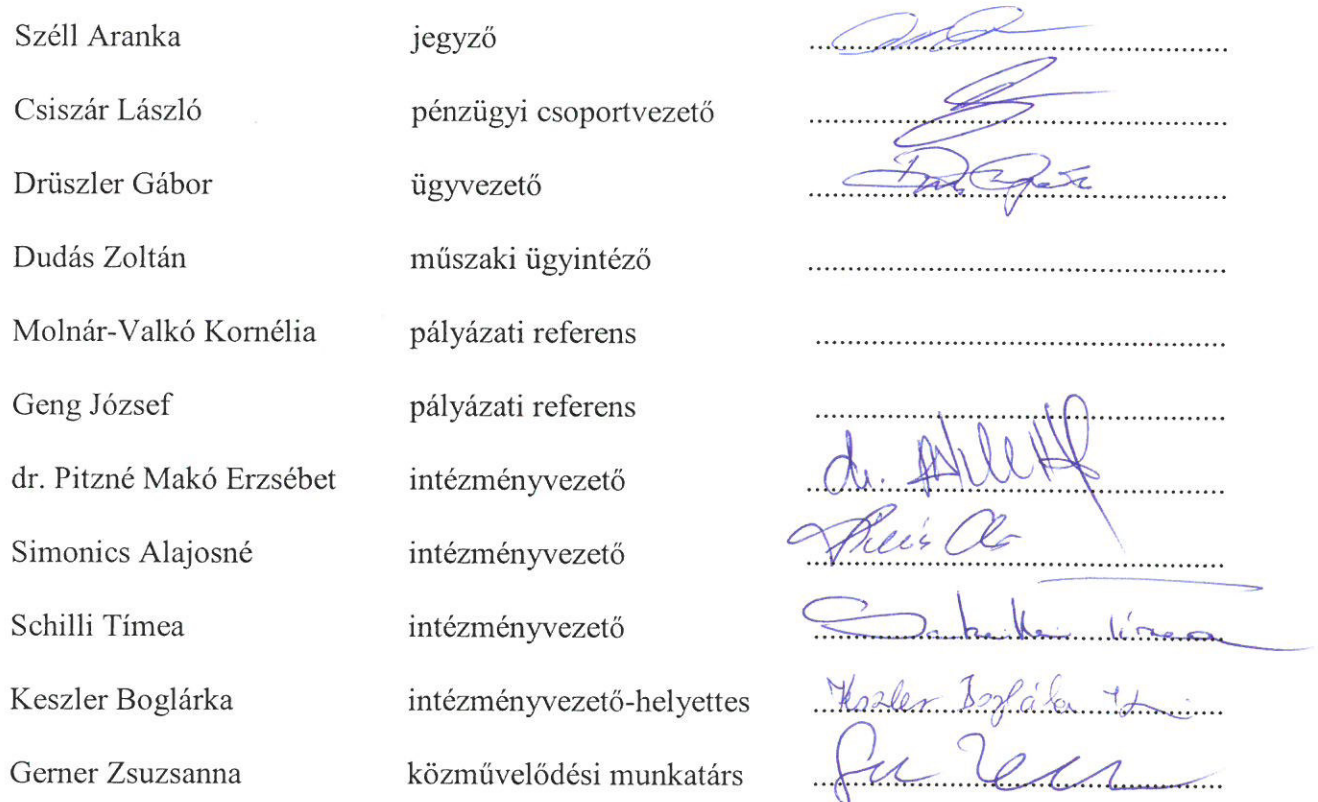 Széll Aranka jegyző ........................................
Csiszár László pénzügyi csoportvezető ........................................
Drüszler Gábor ügyvezető ........................................
Dudás Zoltán műszaki ügyintéző ........................................
Molnár-Valkó Kornélia pályázati referens ........................................
Geng József pályázati referens ........................................
dr. Pitzné Makó Erzsébet intézményvezető dr.
Simonics Alajosné intézményvezető ........................................
Schilli Tímea intézményvezető Tímea
Keszler Boglárka intézményvezető-helyettes Keszler Boglárka
Gerner Zsuzsanna közművelődési munkatárs ........................................